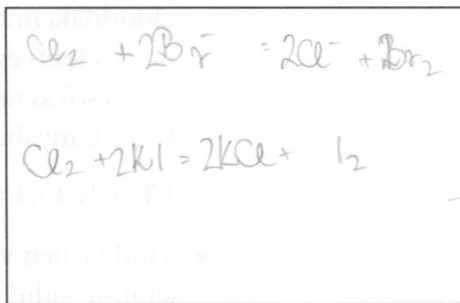 Cl₂ + 2Br⁻ = 2Cl⁻ + Br₂
Cl₂ + 2KI = 2KCl + I₂